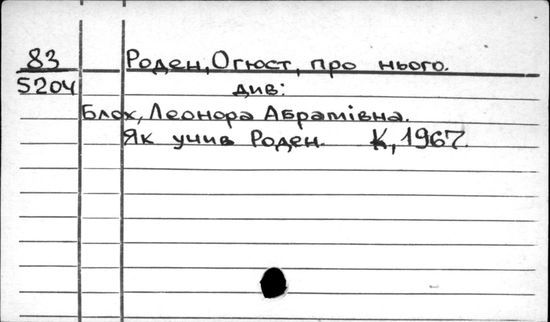 83 Роден, Огюст, про нього.
5204 див:
Блох, Леонора Абрамівна.
Як учив Роден. К, 1967.